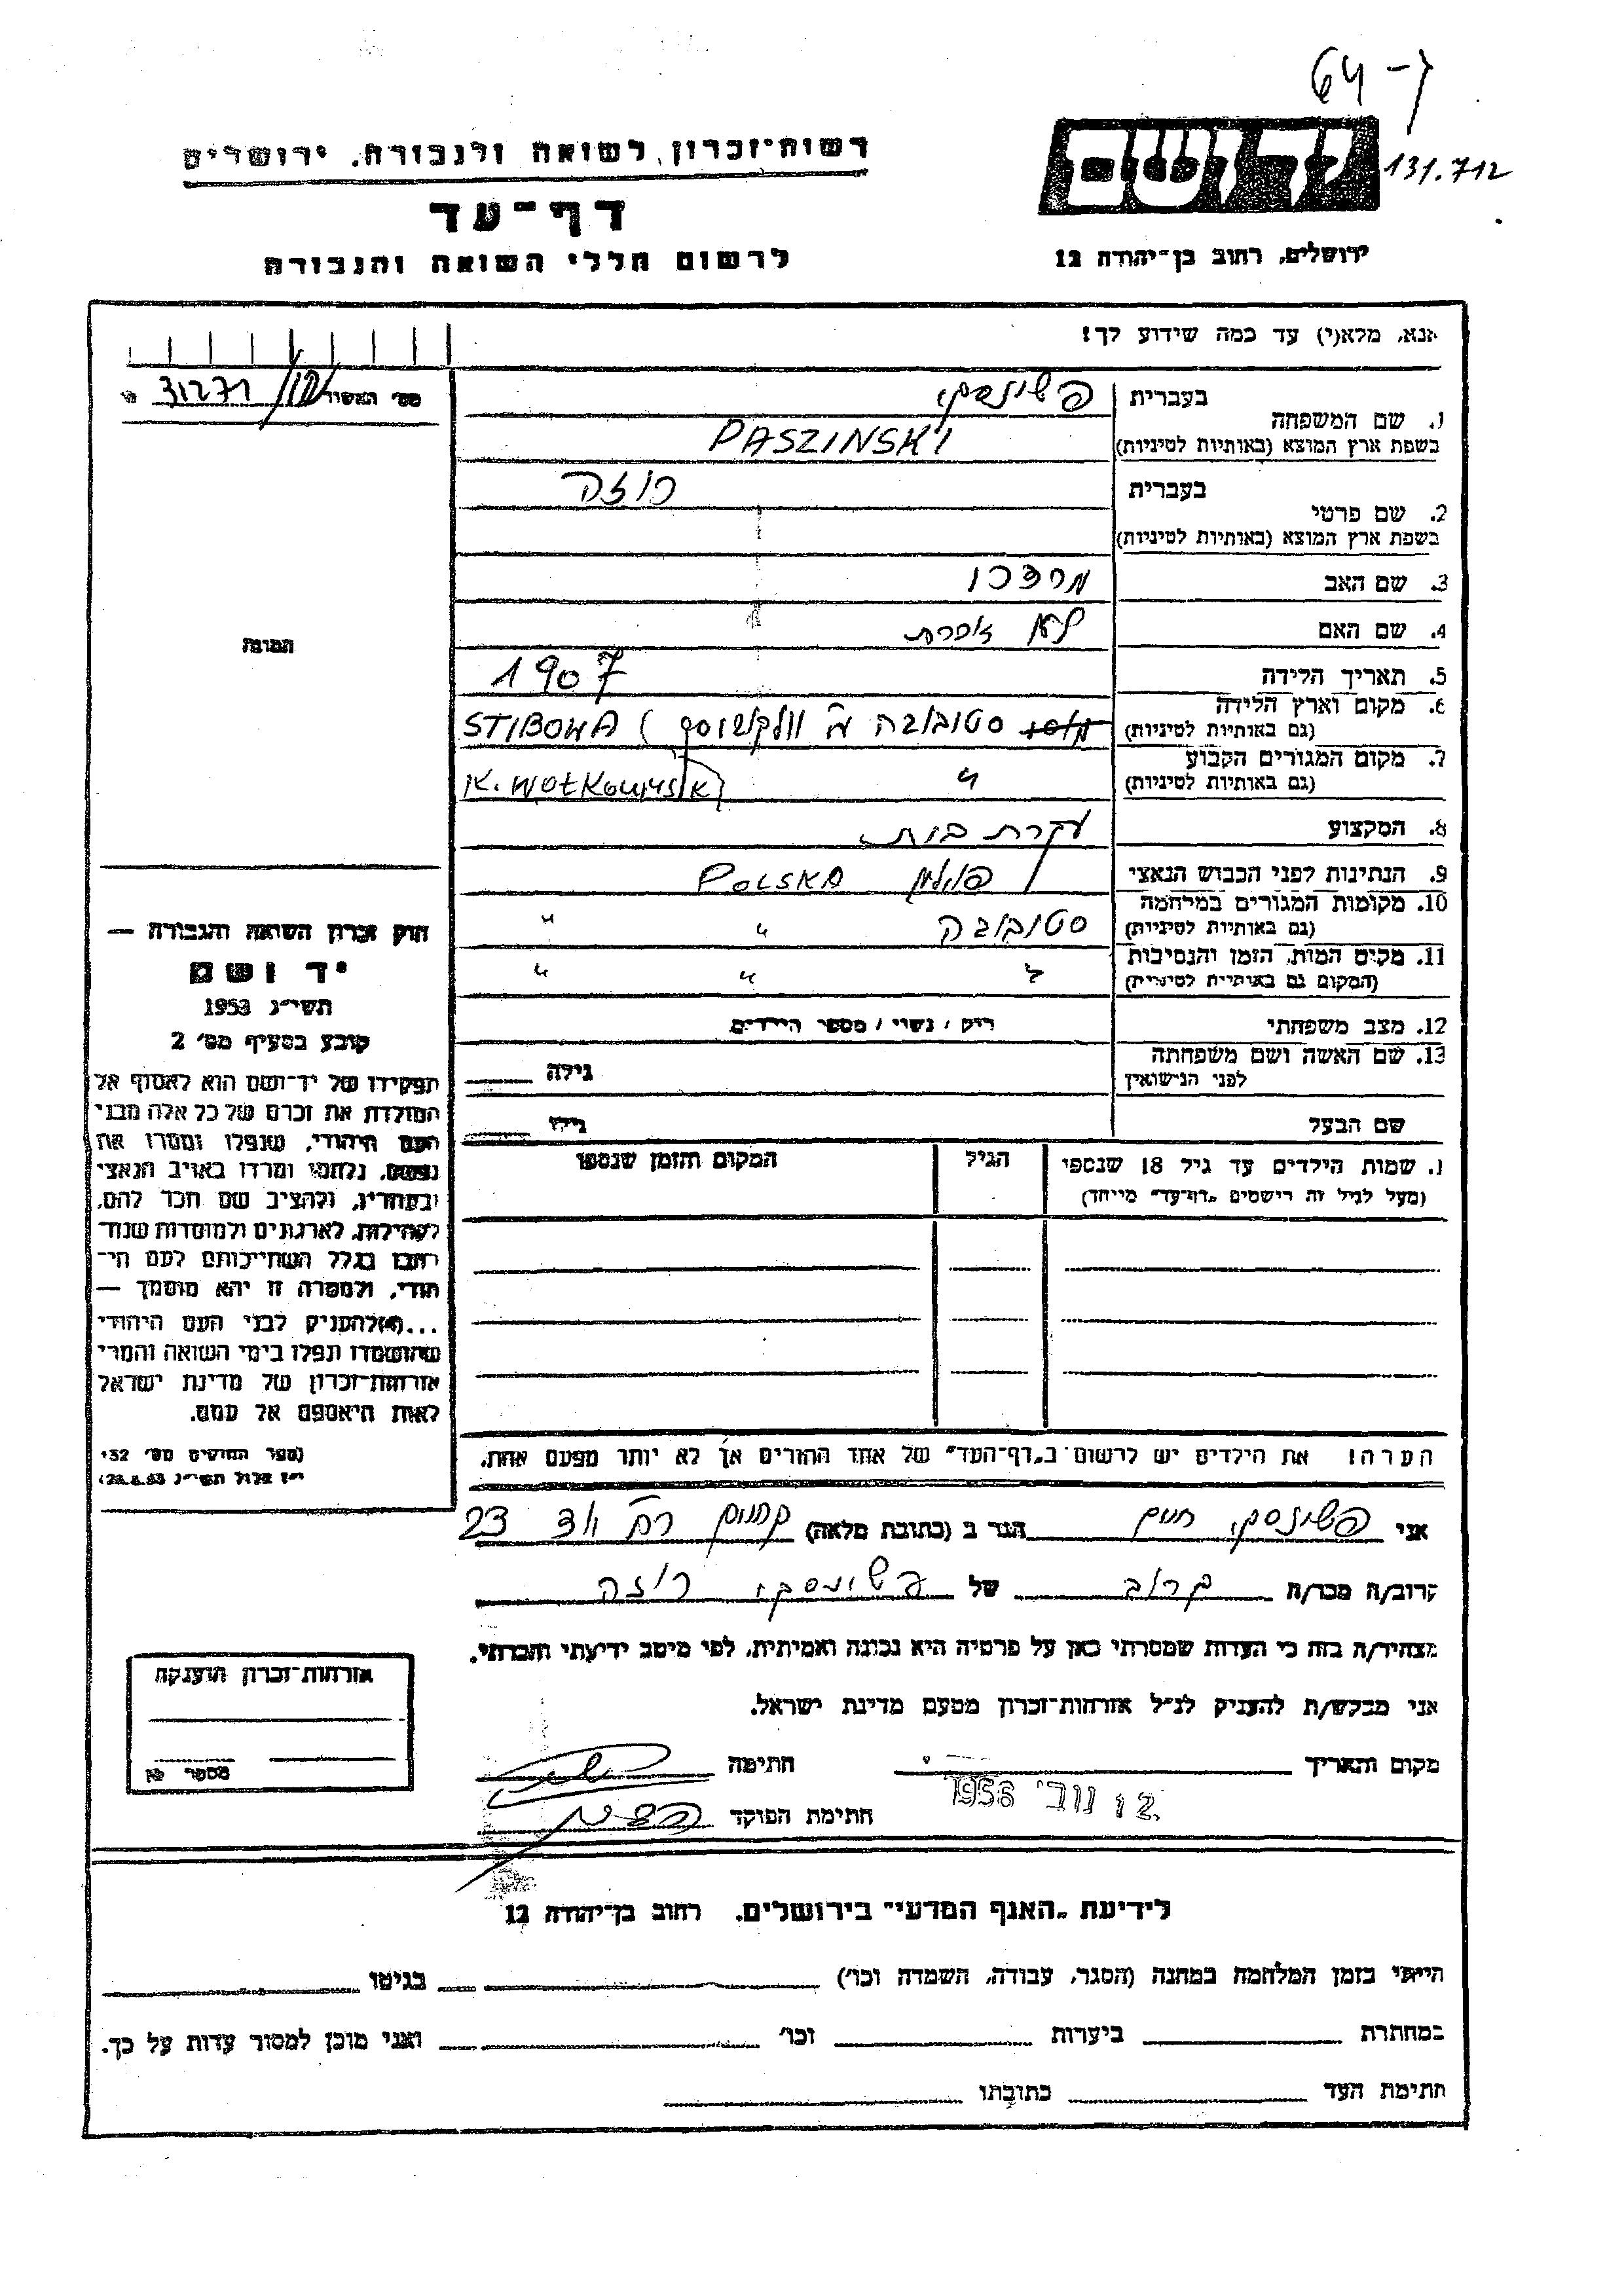 64-7
131.712
רשות־זכרון לשואה ולגבורה, ירושלים
דף־עד
לרשום חללי השואה והגבורה
יד ושם
ירושלים, רחוב בן־יהודה 12
אנא, מלא(י) עד כמה שידוע לך!
מס׳ האשור 31271
1. שם המשפחה
בעברית פשינסקי
בשפת ארץ המוצא (באותיות לטיניות) PASZINSKI
2. שם פרטי
בעברית רוזה
בשפת ארץ המוצא (באותיות לטיניות)
3. שם האב מרדכי
4. שם האם לא זוכרת
5. תאריך הלידה 1907
6. מקום וארץ הלידה
(גם באותיות לטיניות) סטובובה STIBOWA
7. מקום המגורים הקבוע
(גם באותיות לטיניות) " K. WOŁKOWYSK
8. המקצוע עקרת בית
9. הנתינות לפני הכבוש הנאצי פולין POLSKA
10. מקומות המגורים במלחמה
(גם באותיות לטיניות) סטובובה " "
11. מקום המות, הזמן והנסיבות
(המקום גם באותיות לטיניות) ? " "
12. מצב משפחתי רוק / נשוי / מספר הילדים
13. שם האשה ושם משפחתה
לפני הנישואין גילה
שם הבעל גילו
התמונה
חוק זכרון השואה והגבורה —
יד ושם
תשי״ג 1953
קובע בסעיף מס׳ 2
תפקידו של יד־ושם הוא לאסוף אל
המולדת את זכרם של כל אלה מבני
העם היהודי, שנפלו ומסרו את
נפשם, נלחמו ומרדו באויב הנאצי
ובעוזריו, ולהציב שם וזכר להם,
לקהילות, לארגונים ולמוסדות שנח־
רבו בגלל השתייכותם לעם הי־
הודי, ולמטרה זו יהא מוסמך —
...(4)להעניק לבני העם היהודי
שהושמדו ונפלו בימי השואה והמרי
אזרחות־זכרון של מדינת ישראל
לאות היאספם אל עמם.
(ספר החוקים מס׳ 132
י״ז אלול תשי״ג 28.8.53)
1. שמות הילדים עד גיל 18 שנספו
(מעל לגיל זה רושמים „דף־עד״ מיוחד)
הגיל
המקום והזמן שנספו
הערה! את הילדים יש לרשום ב„דף־העד״ של אחד ההורים אך לא יותר מפעם אחת.
אני פשינסקי חיים הגר ב (כתובת מלאה) 23
קרוב/ה מכר/ה קרוב של פשינסקי רוזה
מצהיר/ה בזה כי העדות שמסרתי כאן על פרטיה היא נכונה ואמיתית, לפי מיטב ידיעתי והכרתי.
אני מבקש/ת להעניק לנ״ל אזרחות־זכרון מטעם מדינת ישראל.
מקום ותאריך חתימה
12 נוב׳ 1956
חתימת הפוקד
אזרחות־זכרון הוענקה
מספר
לידיעת „האגף המדעי״ בירושלים, רחוב בן־יהודה 12
הייתי בזמן המלחמה במחנה (הסגר, עבודה, השמדה וכו׳) בגיטו
במחתרת ביערות וכו׳ ואני מוכן למסור עדות על כך.
חתימת העד כתובתו